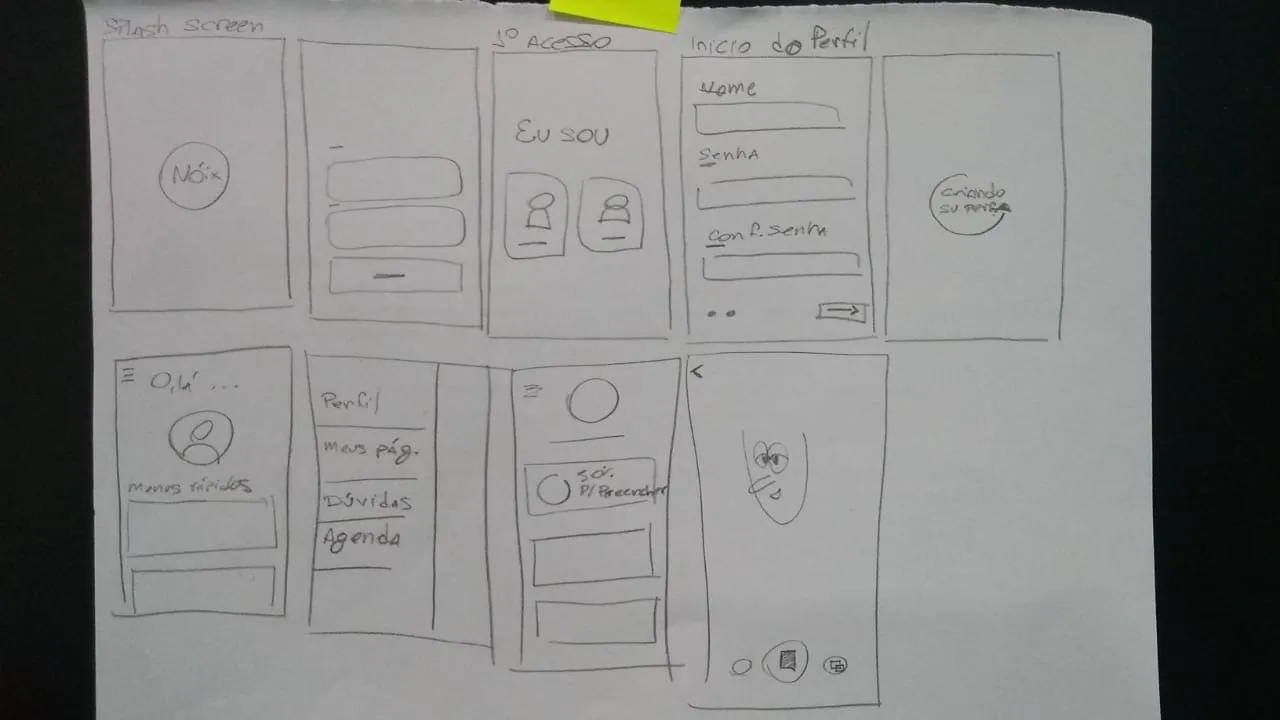 Splash Screen
1º Acesso
Inicio do Perfil
Nóix
Eu sou
Nome
Senha
Conf. Senha
Criando
su perfil
Olá ...
Menos rápidos
Perfil
Meus pág.
Dúvidas
Agenda
50%
P/ Preencher